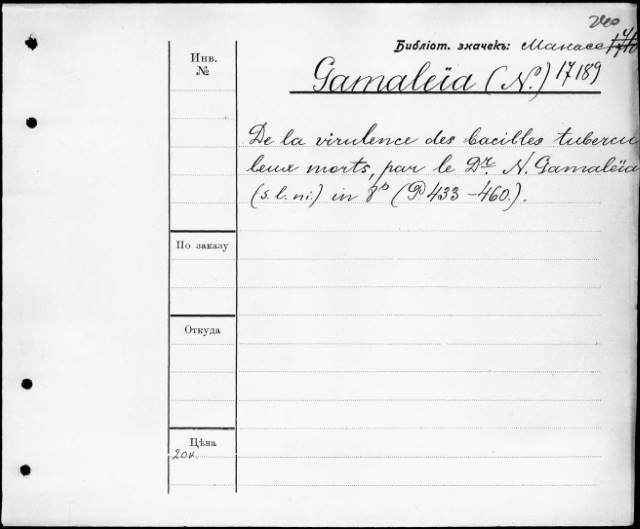 Библіот. значекъ: Манасс
17189
Инв.
№
Gamaleïa (N.)
De la virulence des bacilles tubercu
leux morts, par le Dr. N. Gamaleïa
(s. l. ni.) in 8° (P 433-460.).
По заказу
Откуда
Цѣна
20 к.